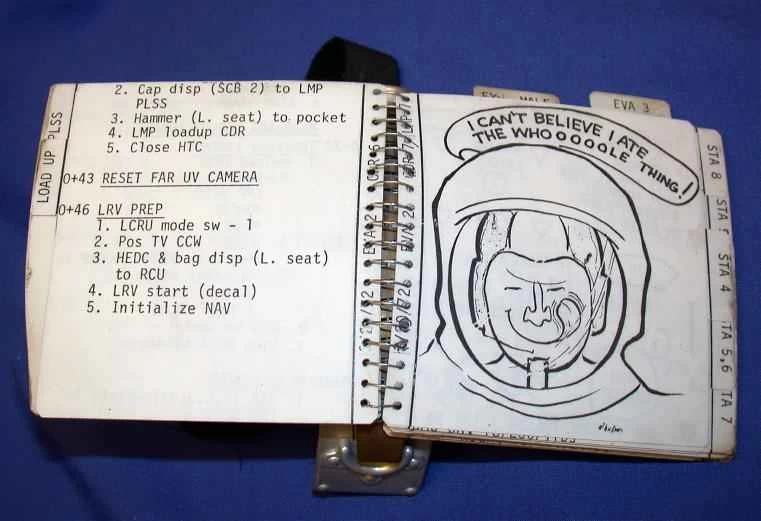 2. Cap disp (SCB 2) to LMP
PLSS
3. Hammer (L. seat) to pocket
4. LMP loadup CDR
5. Close HTC
0+43 RESET FAR UV CAMERA
0+46 LRV PREP
1. LCRU mode sw - 1
2. Pos TV CCW
3. HEDC & bag disp (L. seat)
to RCU
4. LRV start (decal)
5. Initialize NAV
LOAD UP PLSS
EVA 2
EVA 3
I CAN'T BELIEVE I ATE
THE WHOOOOOLE THING!
STA 8
STA
STA 4
TA 5,6
TA 7